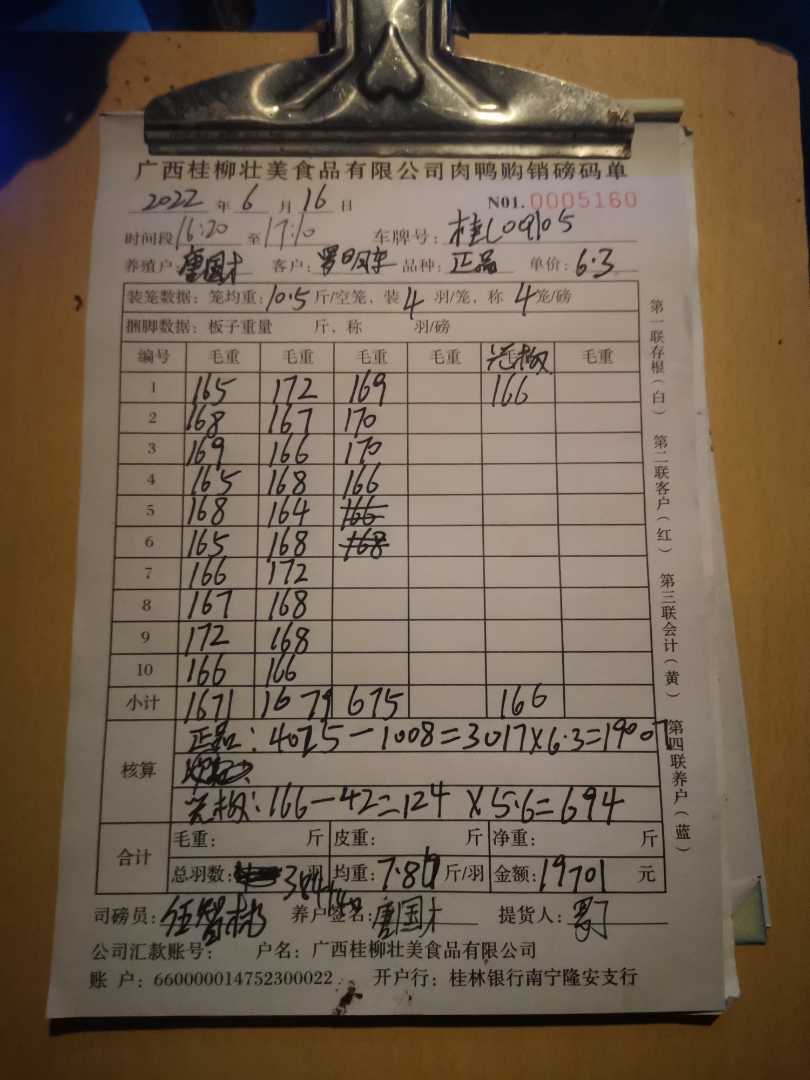 广西桂柳壮美食品有限公司肉鸭购销磅码单
2022年6月16日 N01.0005160
时间段16:20至17:10 车牌号:桂L09105
养殖户:唐国才 客户: 品种:正品 单价:6.3
装笼数据:笼均重:10.5斤/空笼、装4羽/笼、称4笼/磅
捆脚数据:板子重量 斤、称 羽/磅
编号 毛重 毛重 毛重 毛重 毛重 毛重
1 165 172 169 166
2 168 167 170
3 169 166 170
4 165 168 166
5 168 164 166
6 165 168 168
7 166 172
8 167 168
9 172 168
10 166 166
小计 1671 1679 675 166
核算 正品:4025-1008=3017×6.3=19007
166-42=124 ×5.6=694
合计 毛重: 斤 皮重: 斤 净重: 斤
总羽数: 384+ 羽 均重:7.86斤/羽 金额:19701元
司磅员: 养户签名:唐国才 提货人:罗
公司汇款账号: 户名:广西桂柳壮美食品有限公司
账 户:660000014752300022 开户行:桂林银行南宁隆安支行
第一联存根(白) 第二联客户(红) 第三联会计(黄) 第四联养户(蓝)